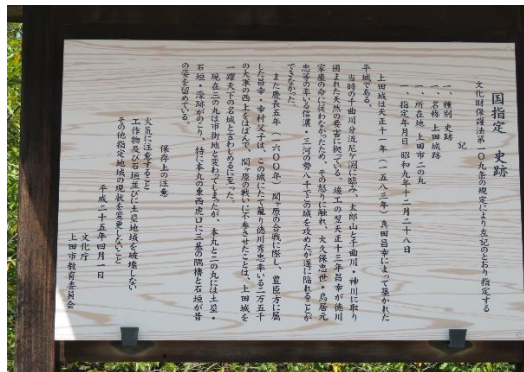 国指定 史跡
文化財保護法第一〇九条の規定により左記のとおり指定する
記
一、種別 史跡
一、名称 上田城跡
一、所在地 上田市二の丸
一、指定年月日 昭和九年十二月二十八日
上田城は天正十一年(一五八三年)真田昌幸によって築かれた
平城である。
当時の千曲川分流尼ケ淵に臨み、太郎山と千曲川・神川に取り
囲まれた天然の要害に拠っている。竣工の翌天正十三年昌幸が徳川
家康の命に従わなかったため、その怒りに触れ、大久保忠世・鳥居元
忠等の率いる信濃・三河の勢八千でこの城を攻めたが遂に陥れることが
できなかった。
また慶長五年(一六〇〇年)関ケ原の合戦に際し、豊臣方に属
した昌幸・幸村父子は、この城にたて籠り徳川秀忠率いる三万五千
の大軍の西上をはばんで、関ケ原の戦いに不参させたことは、上田城を
一躍天下の名城と言わしめるに至った。
現在三の丸は市街地と変わってしまったが、本丸と二の丸には土塁・
石垣・濠跡がのこり、特に本丸の東西虎口に三基の隅櫓と石垣が昔
の姿を留めている。
保存上の注意
火気に注意すること
工作物及び石垣並びに土塁地域を破壊しない
その他指定地域の現状を変更しないこと
平成二十五年四月一日
文化庁
上田市教育委員会